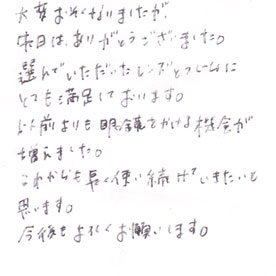 大変おそくなりましたが、
本日は、ありがとうございました。
選んでいただいたレンズとフレームに
とても満足しております。
以前よりも眼鏡をかける機会が
増えました。
これからも長く使い続けていきたいと
思います。
今後もよろしくお願いします。